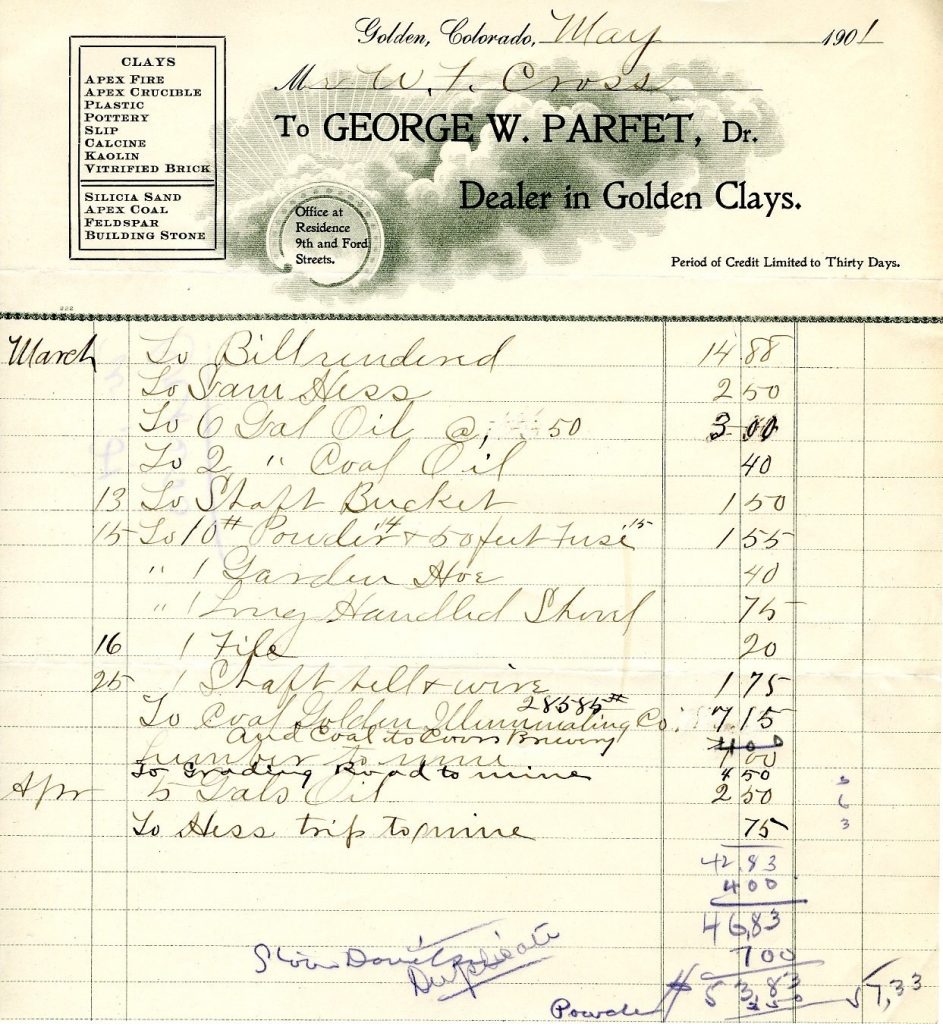 Golden, Colorado, May 1901
Mr W. F. Cross
To GEORGE W. PARFET, Dr.
Dealer in Golden Clays.
CLAYS
APEX FIRE
APEX CRUCIBLE
PLASTIC
POTTERY
SLIP
CALCINE
KAOLIN
VITRIFIED BRICK
SILICIA SAND
APEX COAL
FELDSPAR
BUILDING STONE
Office at
Residence
9th and Ford
Streets.
Period of Credit Limited to Thirty Days.
March To Bill rendered 14 88
To Sam Hess 2 50
To 6 Gal Oil @ 50 3 00
To 2 " Coal Oil 40
13 To Shaft Bucket 1 50
15 To 10# Powder 14 & 50 feet Fuse 15 1 55
" 1 Garden Hoe 40
" 1 Long Handled Shovel 75
16 1 File 20
25 1 Shaft bell & wire 1 75
28585#
To Coal Golden Illuminating Co. 7 15
and Coal to Coors Brewery 4 00
Lumber to mine 7 00
To Grading Road to mine 4 50
Apr 5 Gals Oil 2 50
To Hess trip to mine 75
5
6
3
42.83
4 00
46,83
7 00
Duplicate
$ 53,83 57,33
Powder 3 50